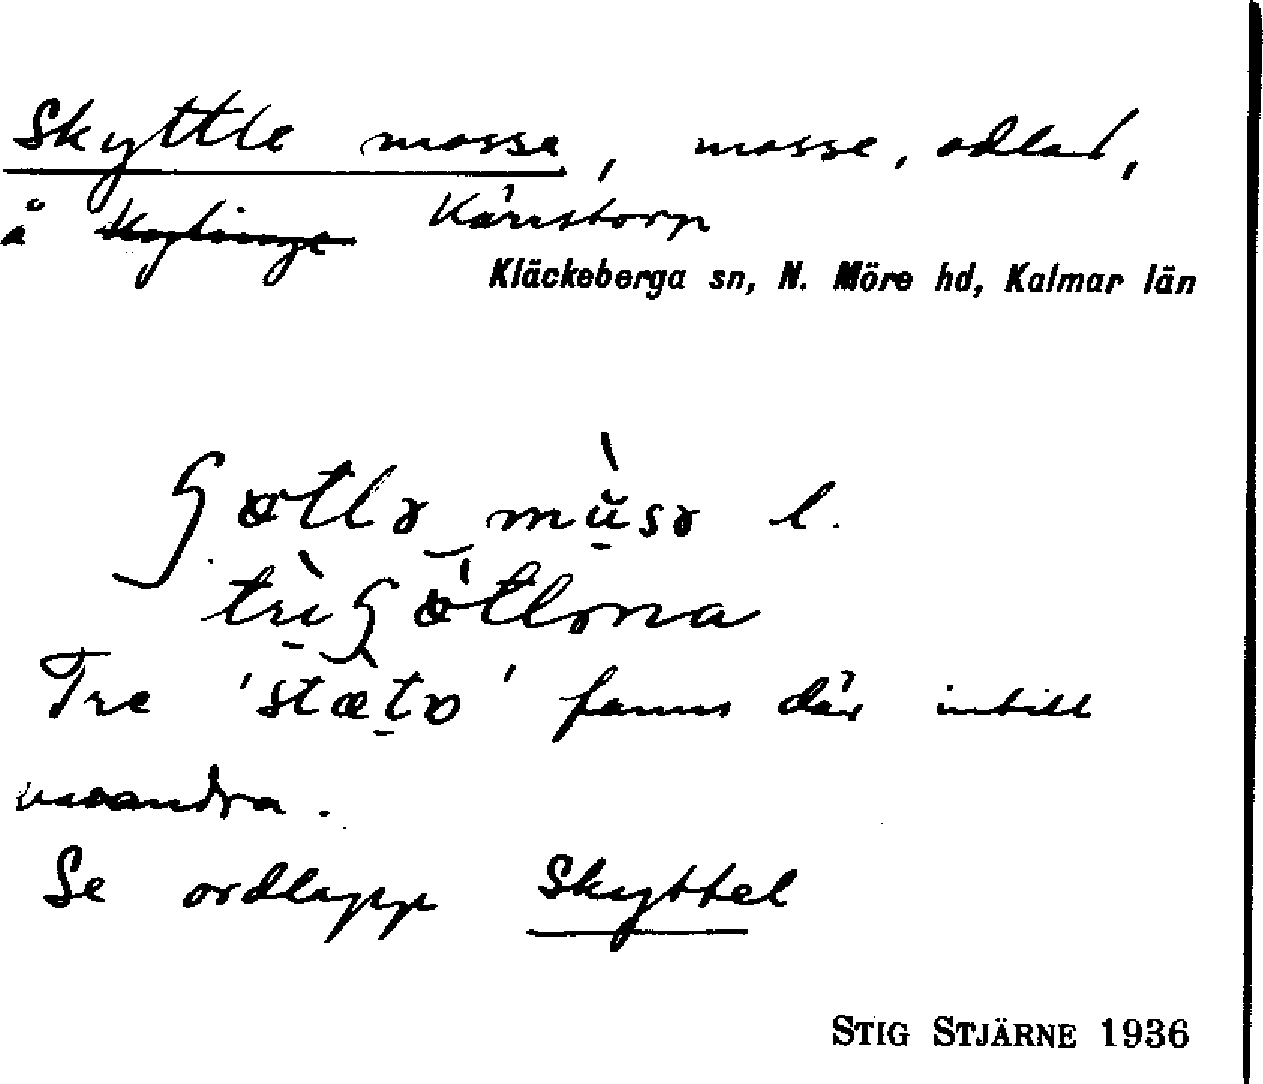 Skyttle mosse, mosse, odlad,
å Kärrstorp
Kläckeberga sn, N. Möre hd, Kalmar län
l.
Tre 'stætɒ' fanns där intill
varandra.
Se ordlapp Skyttel
STIG STJÄRNE 1936